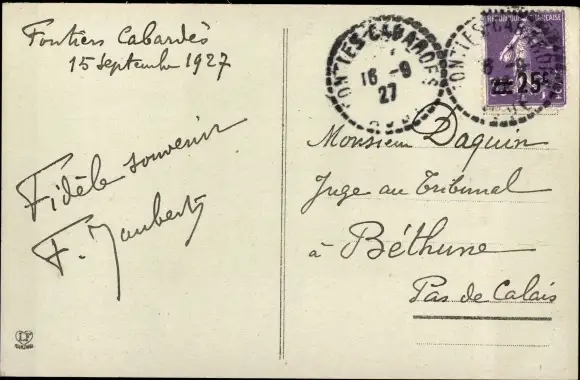 Fontiers Cabardès
15 Septembre 1927
Fidèle souvenir
F. Jaubert
FONTIES-CABARDES
16 -9
27
AUDE
REPUBLIQUE FRANÇAISE
25c
Monsieur Daquin
Juge au Tribunal
à Béthune
Pas de Calais